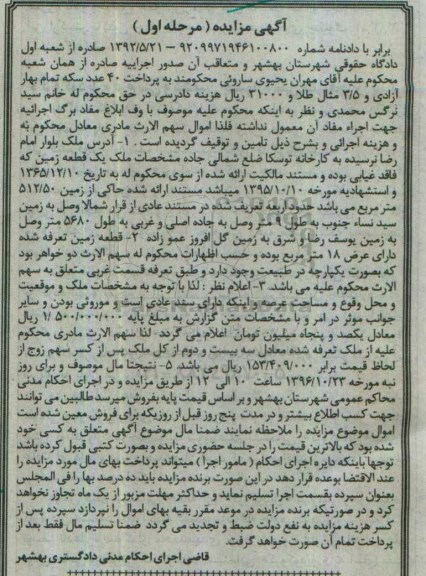 آگهی مزایده ( مرحله اول )
برابر با دادنامه شماره ۹۲۰۹۹۷۱۹۴۶۱۰۰۸۰۰ – ۱۳۹۲/۵/۲۱ صادره از شعبه اول
دادگاه حقوقی شهرستان بهشهر و متعاقب آن صدور اجراییه صادره از همان شعبه
محکوم علیه آقای مهران یحیوی ساروئی محکومند به پرداخت ۴۰ عدد سکه تمام بهار
آزادی و ۳/۵ مثال طلا و ۳۱۰۰۰ ریال هزینه دادرسی در حق محکوم له خانم سید
نرگس محمدی و نظر به اینکه محکوم علیه موصوف با وف ابلاغ مفاد برگ اجرائیه
جهت اجراء مفاد آن معمول نداشته فلذا اموال سهم الارث مادری معادل محکوم به
و هزینه اجرائی و بشرح ذیل تامین و توقیف گردیده است . ۱- آدرس ملک بلوار امام
رضا نرسیده به کارخانه توسکا ضلع شمالی جاده مشخصات ملک یک قطعه زمین که
فاقد غیابی بوده و مستند مالکیت ارائه شده از سوی محکوم له به تاریخ ۱۳۶۵/۱۲/۱۰
و استشهادیه مورخه ۱۳۹۵/۱۰/۱۰ میباشد مستند ارائه شده حاکی از زمین ۵۱۲/۵۰
متر مربع می باشد حدود اربعه تعریف شده در مستند عادی از قرار شمالا وصل به زمین
سید نساء جنوب به طول ۹ متر وصل به جاده اصلی و غربی به طول ۵۶۸۰ متر وصل
به زمین یوسف رضا و شرق به زمین گل افروز عمو زاده ۲- قطعه زمین تعرفه شده
دارای عرض ۱۸ متر مربع بوده و حسب اظهارات محکوم له سهم الارث دو خواهر بود
که بصورت یکپارچه در طبیعت وجود دارد و طبق تعرفه قسمت غربی متعلق به سهم
الارث محکوم علیه می باشد. ۳- اعلام نظر : لذا با توجه به مشخصات ملک و موقعیت
و محل وقوع و مساحت عرصه و اینکه دارای سند عادی است و موروثی بودن و سایر
جوانب موثر در امر و با مشخصات متن گزارش به مبلغ پایه ۱/۵۰۰/۰۰۰/۰۰۰ ریال
معادل یکصد و پنجاه میلیون تومان اعلام می گردد لذا سهم الارث مادری محکوم
علیه از ملک تعرفه شده معادل سه بیست و دوم از کل ملک پس از کسر سهم زوج از
لحاظ قیمت برابر ۱۵۳/۴۰۹/۰۰۰ ریال می باشد. ۵- نتیجتا مال موصوف و برای روز
نبه مورخه ۱۳۹۶/۱۰/۲۳ ساعت ۱۰ الی ۱۲ از طریق مزایده و در اجرای احکام مدنی
محاکم عمومی شهرستان بهشهر و بر اساس قیمت پایه بفروش میرسد طالبین می توانند
جهت کسب اطلاع بیشتر و در مدت پنج روز قبل از روزیکه برای فروش معین شده است
اموال موضوع مزایده را ملاحظه نمایند ضمنا مال موضوع آگهی متعلق به کسی خود
شده بود که بالاترین قیمت را در جلسه حضوری مزایده و بصورت کتبی قبول کرده باشد
توجها باینکه دایره اجرای احکام ( مامور اجرا ) میتواند پرداخت بهای مال مورد مزایده را
عند الاقتضا بوعده قرار دهد در این صورت برنده مزایده باید ده درصد بها را فی المجلس
بعنوان سپرده بقسمت اجرا تسلیم نماید و حداکثر مهلت مزبور از یک ماه تجاوز نخواهد
کرد و در صورتیکه برنده مزایده در موعد مقرر بقیه بهای اموال را نپردازد سپرده پس از
کسر هزینه مزایده به نفع دولت ضبط و تجدید می گردد ضمنا تسلیم مال فقط بعد از
پرداخت تمام آن صورت خواهد گرفت.
قاضی اجرای احکام مدنی دادگستری بهشهر